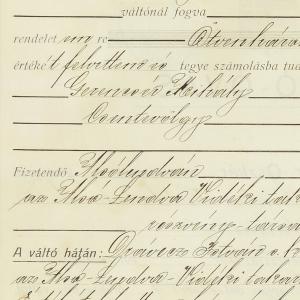 váltónál fogva
rendelet en re Ötvenháro
értéké t felvettem és tegye számolásba tud
Gerencsér Mihály
Csentevölgy
Fizetendő Alsólendván
az Alsó-Lendva Vidéki tak
részvény-társa
A váltó hátán: István s. k.
az Alsó Lendva-Vidéki takar